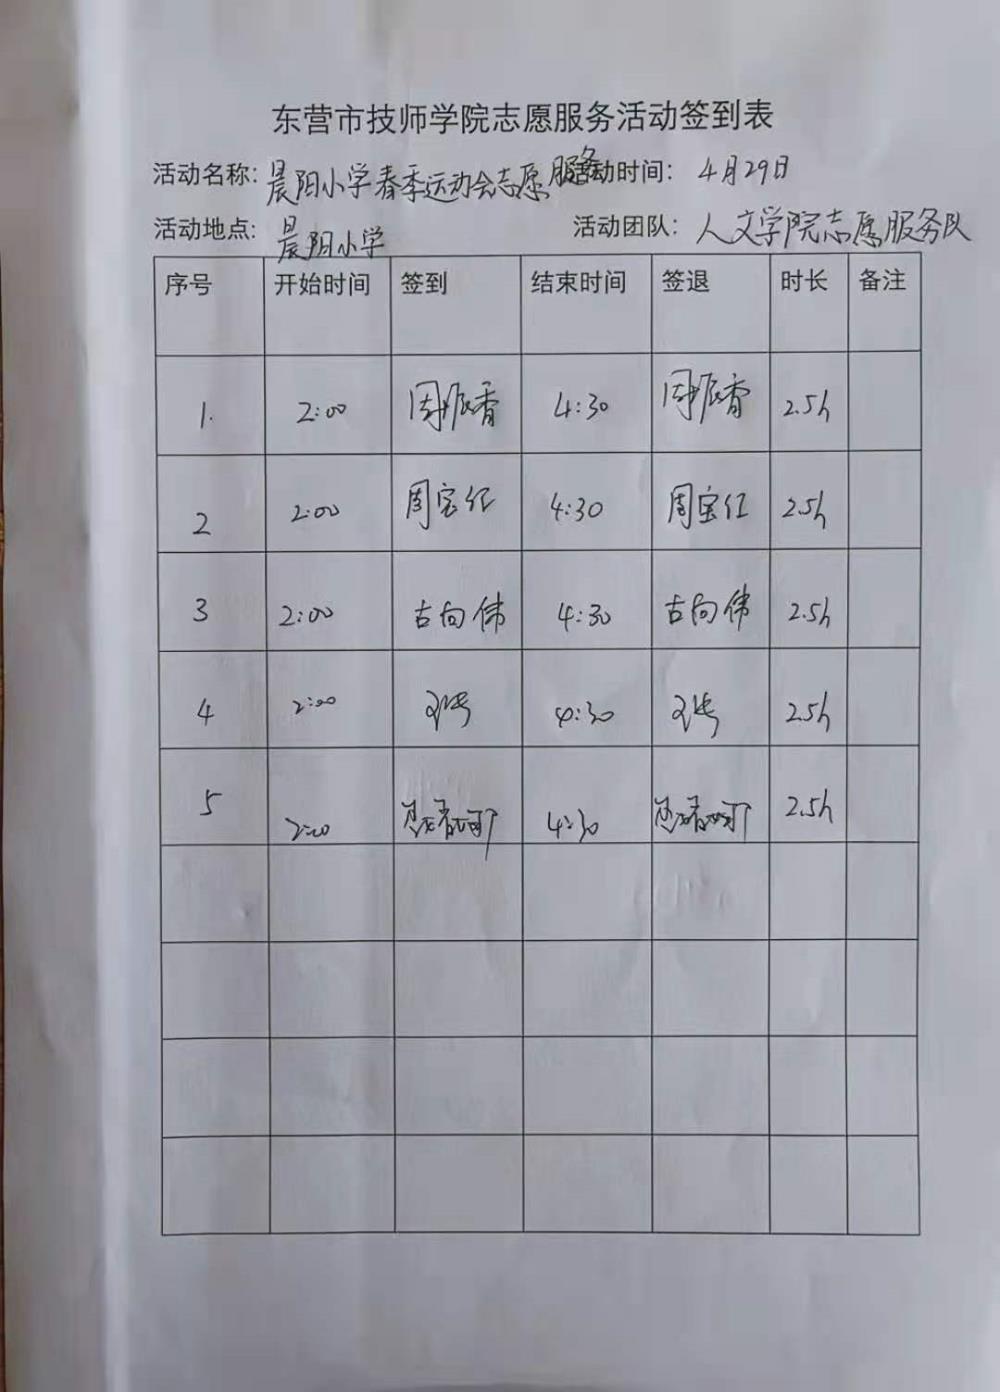 东营市技师学院志愿服务活动签到表
活动名称: 晨阳小学春季运动会志愿服务 活动时间: 4月29日
活动地点: 晨阳小学 活动团队: 人文学院志愿服务队
序号 开始时间 签到 结束时间 签退 时长 备注
1. 2:00 周振香 4:30 周振香 2.5h
2 2:00 周宝红 4:30 周宝红 2.5h
3 2:00 古向伟 4:30 古向伟 2.5h
4 2:00 4:30 2.5h
5 2:00 4:30 2.5h